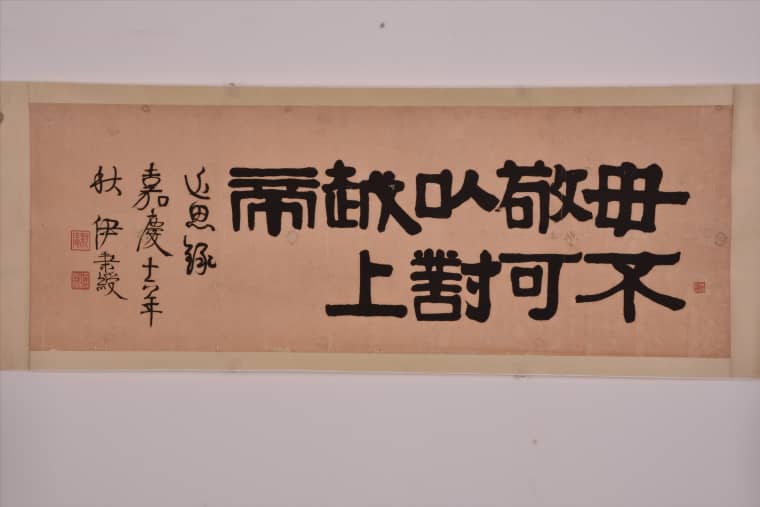 毋不
敬可
以對
越上
帝
近思錄
嘉慶十六年
秋伊秉綬